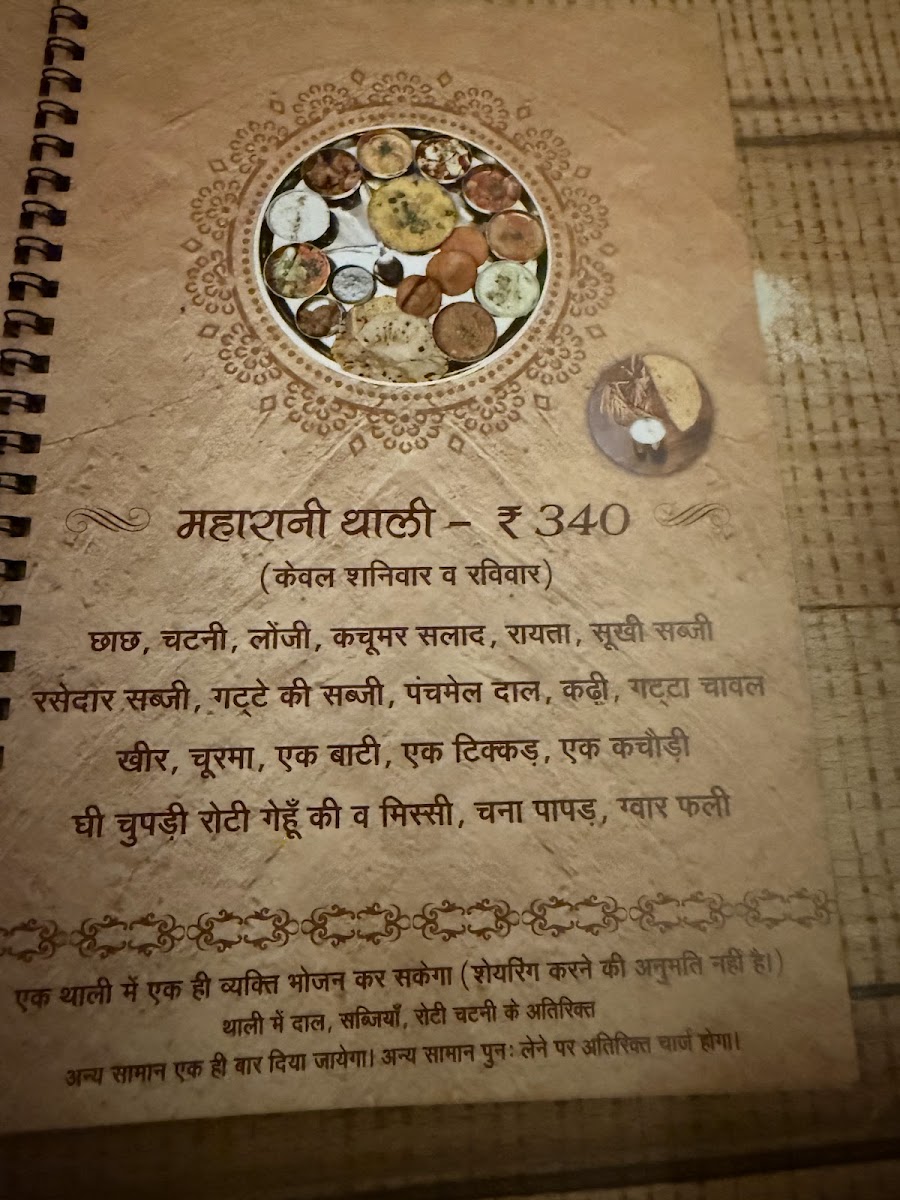 महारानी थाली – ₹ 340
(केवल शनिवार व रविवार)
छाछ, चटनी, लोंजी, कचूमर सलाद, रायता, सूखी सब्जी
रसेदार सब्जी, गट्टे की सब्जी, पंचमेल दाल, कढ़ी, गट्टा चावल
खीर, चूरमा, एक बाटी, एक टिक्कड़, एक कचौड़ी
घी चुपड़ी रोटी गेहूँ की व मिस्सी, चना पापड़, ग्वार फली
एक थाली में एक ही व्यक्ति भोजन कर सकेगा (शेयरिंग करने की अनुमति नहीं है।)
थाली में दाल, सब्जियाँ, रोटी चटनी के अतिरिक्त
अन्य सामान एक ही बार दिया जायेगा। अन्य सामान पुनः लेने पर अतिरिक्त चार्ज होगा।